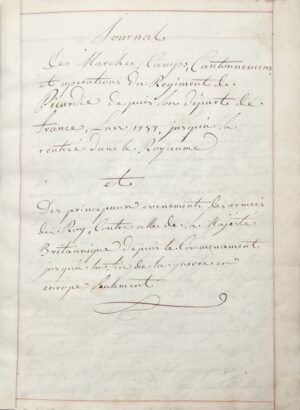 Journal
Des Marches, Camps, Cantonnemens
et operations du Regiment de
Picardie depuis son départ de
france, L'an 1757, jusqu'a la
rentrée dans le Royaume
et
Des principaux evenements des armées
du Roy, Contre celles de Sa Majesté
Britannique depuis le Commencement
jusqu'a la fin de la guerre en
europe Seulement